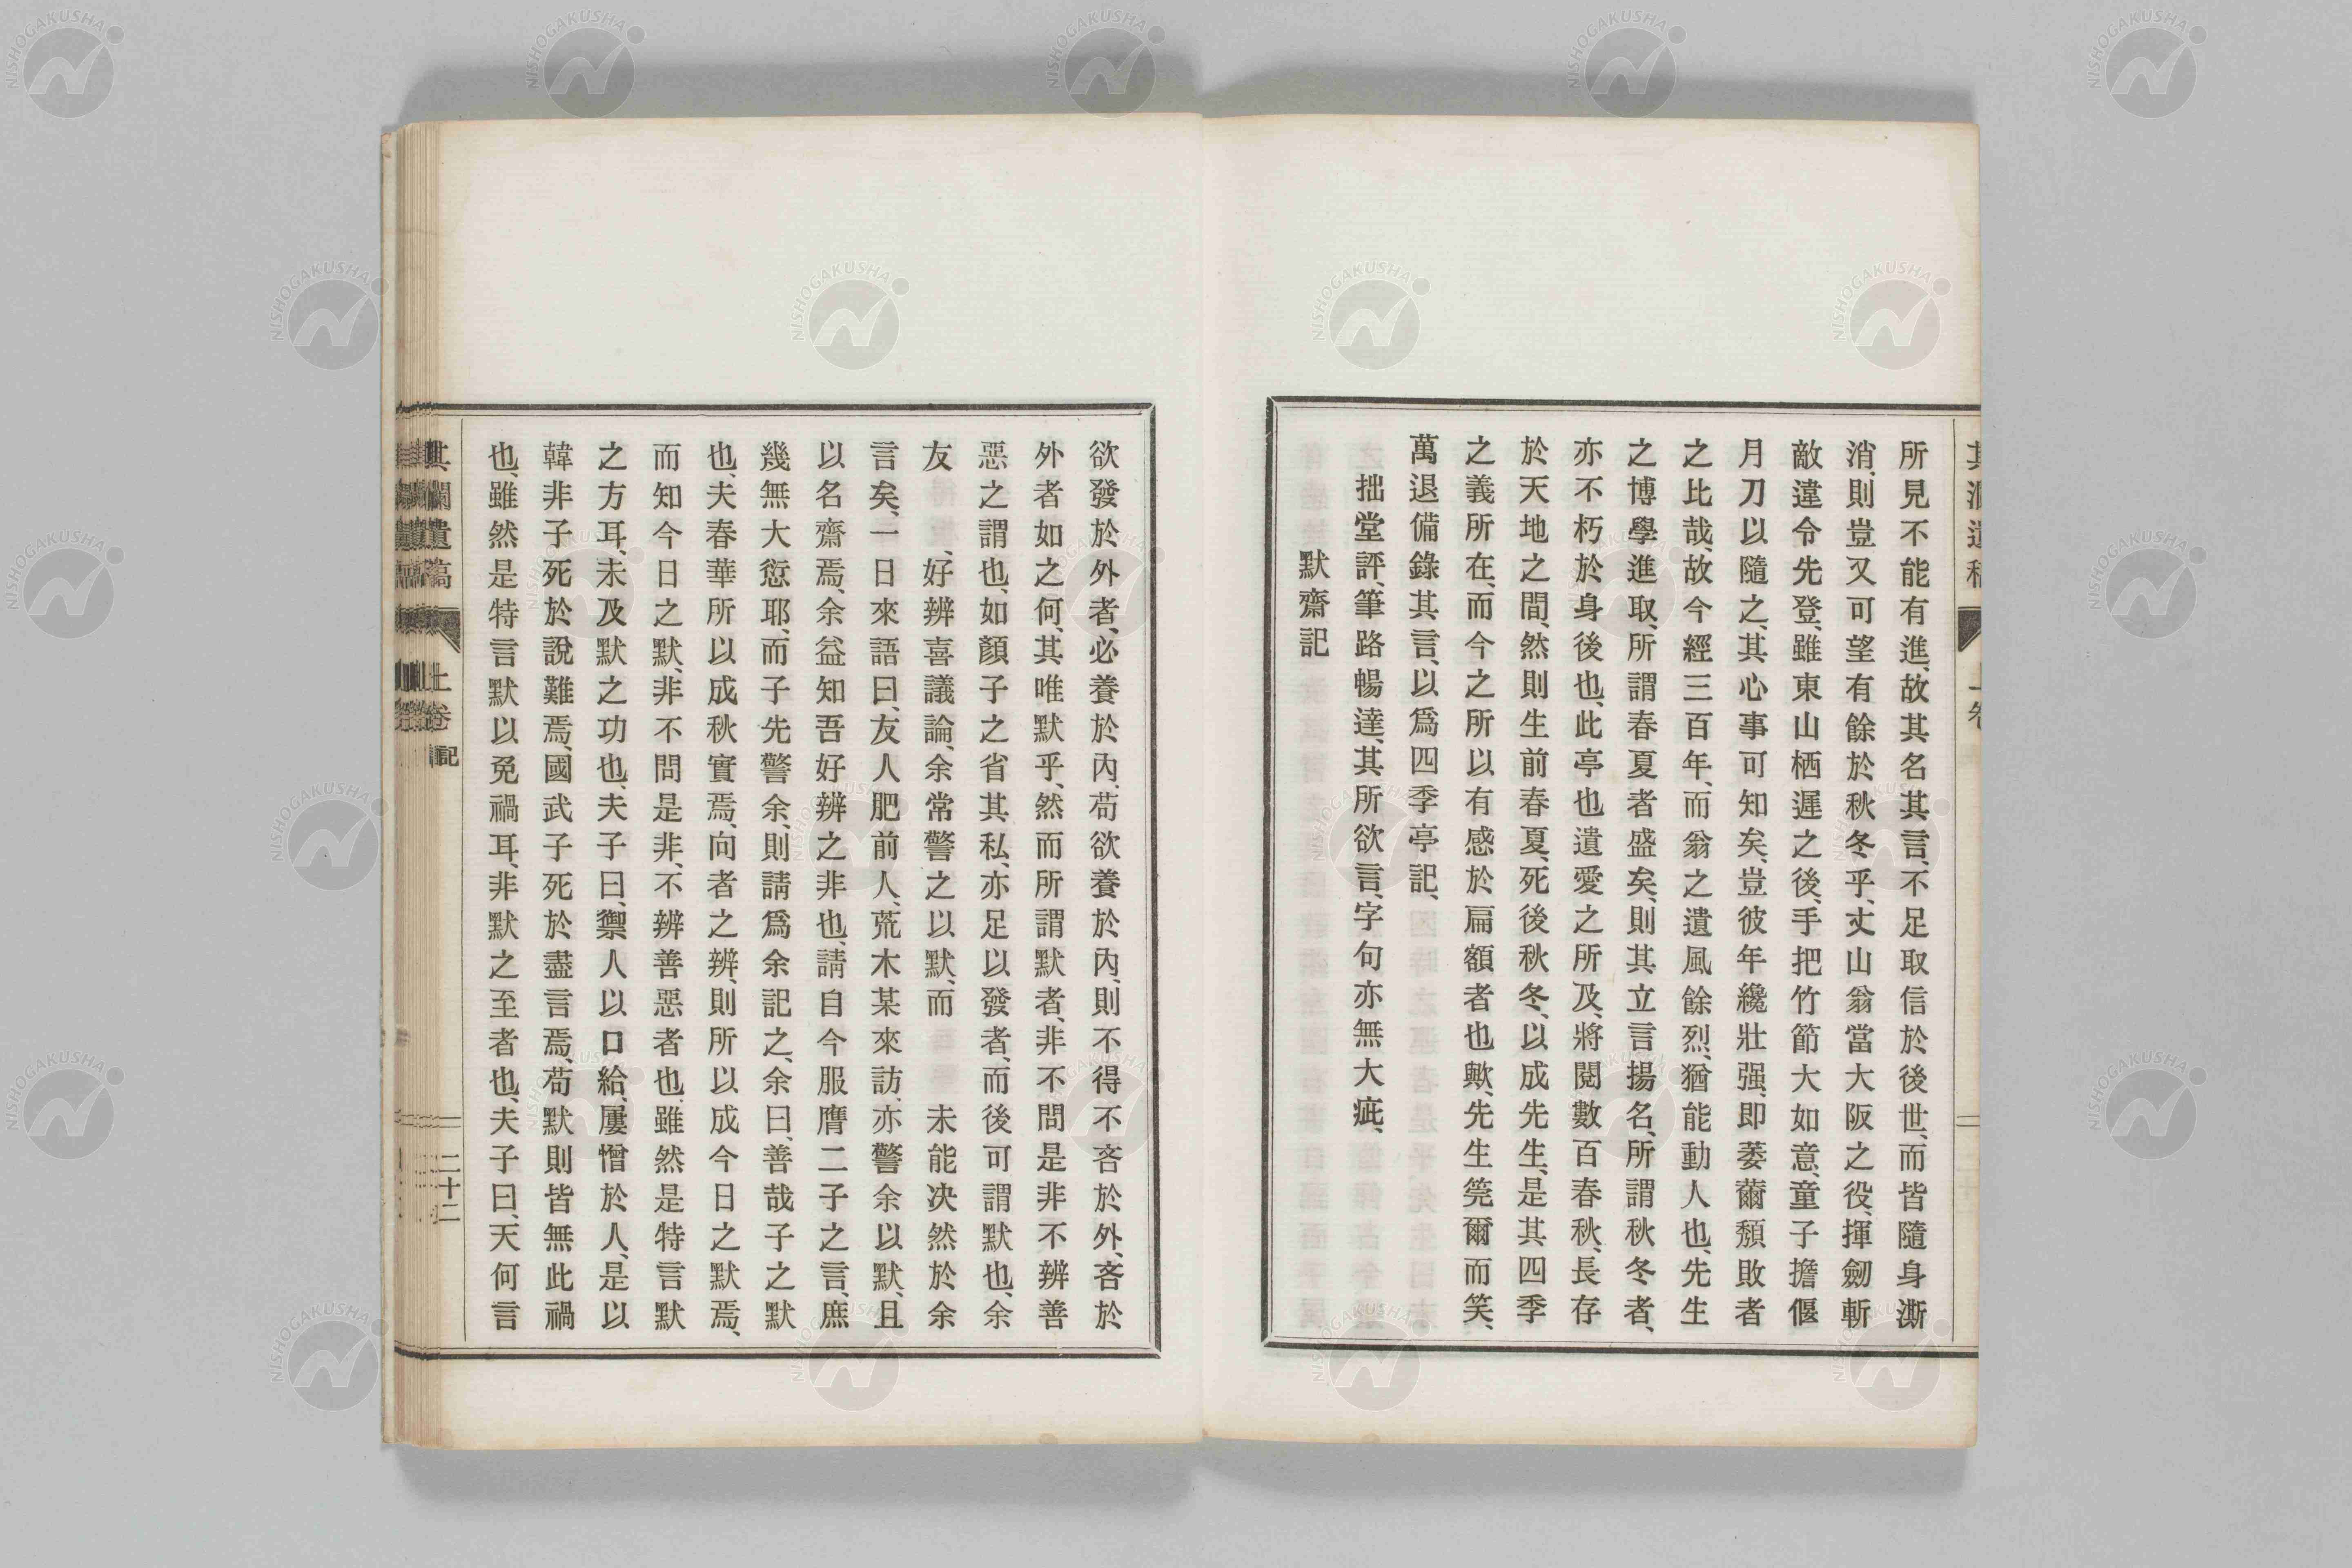 所見不能有進、故其名其言、不足取信於後世、而皆隨身澌
消、則豈又可望有餘於秋冬乎、丈山翁當大阪之役、揮劒斬
敵違令先登、雖東山栖遲之後、手把竹節大如意、童子擔偃
月刀以隨之、其心事可知矣、豈彼年纔壯强、即萎薾頽敗者
之比哉、故今經三百年、而翁之遺風餘烈、猶能動人也、先生
之博學進取、所謂春夏者盛矣、則其立言揚名、所謂秋冬者、
亦不朽於身後也、此亭也遺愛之所及、將閱數百春秋、長存
於天地之間、然則生前春夏、死後秋冬、以成先生、是其四季
之義所在、而今之所以有感於扁額者也歟、先生筦爾而笑、
萬退備錄其言、以爲四季亭記、
拙堂評、筆路暢達、其所欲言、字句亦無大疵、
默齋記
欲發於外者、必養於內、苟欲養於內、則不得不吝於外、吝於
外者如之何、其唯默乎、然而所謂默者、非不問是非不辨善
惡之謂也、如顏子之省其私、亦足以發者、而後可謂默也、余
友　　、好辨喜議論、余常警之以默、而　　未能決然於余
言矣、一日來語曰、友人肥前人、荒木某來訪、亦警余以默、且
以名齋焉、余益知吾好辨之非也、請自今服膺二子之言、庶
幾無大愆耶、而子先警余、則請爲余記之、余曰、善哉子之默
也、夫春華所以成秋實焉、向者之辨、則所以成今日之默焉、
而知今日之默、非不問是非、不辨善惡者也、雖然是特言默
之方耳、未及默之功也、夫子曰、禦人以口給、屢憎於人、是以
韓非子死於說難焉、國武子死於盡言焉、苟默則皆無此禍
也、雖然是特言默以免禍耳、非默之至者也、夫子曰、天何言
其澗遺稿
上卷
記
二十二